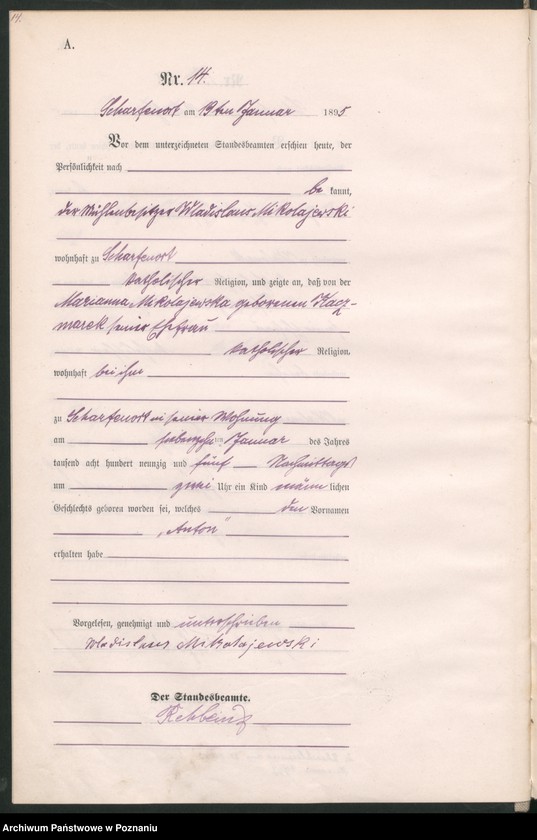 14.
A.
Nr. 14.
Scharfenort am 19ten Januar 1895
Vor dem unterzeichneten Standesbeamten erschien heute, der
Persönlichkeit nach
be kannt,
der Mühlenbesitzer Wladislaus Mikolajewski
wohnhaft zu Scharfenort
katholischer Religion, und zeigte an, daß von der
Marianna Mikolajewska geborenen Kacz-
marek seiner Ehefrau
katholischer Religion.
wohnhaft bei ihm
zu Scharfenort in seiner Wohnung
am siebenzehnten Januar des Jahres
tausend acht hundert neunzig und fünf Nachmittags
um zwei Uhr ein Kind männ lichen
Geschlechts geboren worden sei, welches den Vornamen
„Anton“
erhalten habe
Vorgelesen, genehmigt und unterschrieben
Wladislaus Mikolajewski
Der Standesbeamte.
Archiwum Państwowe w Poznaniu